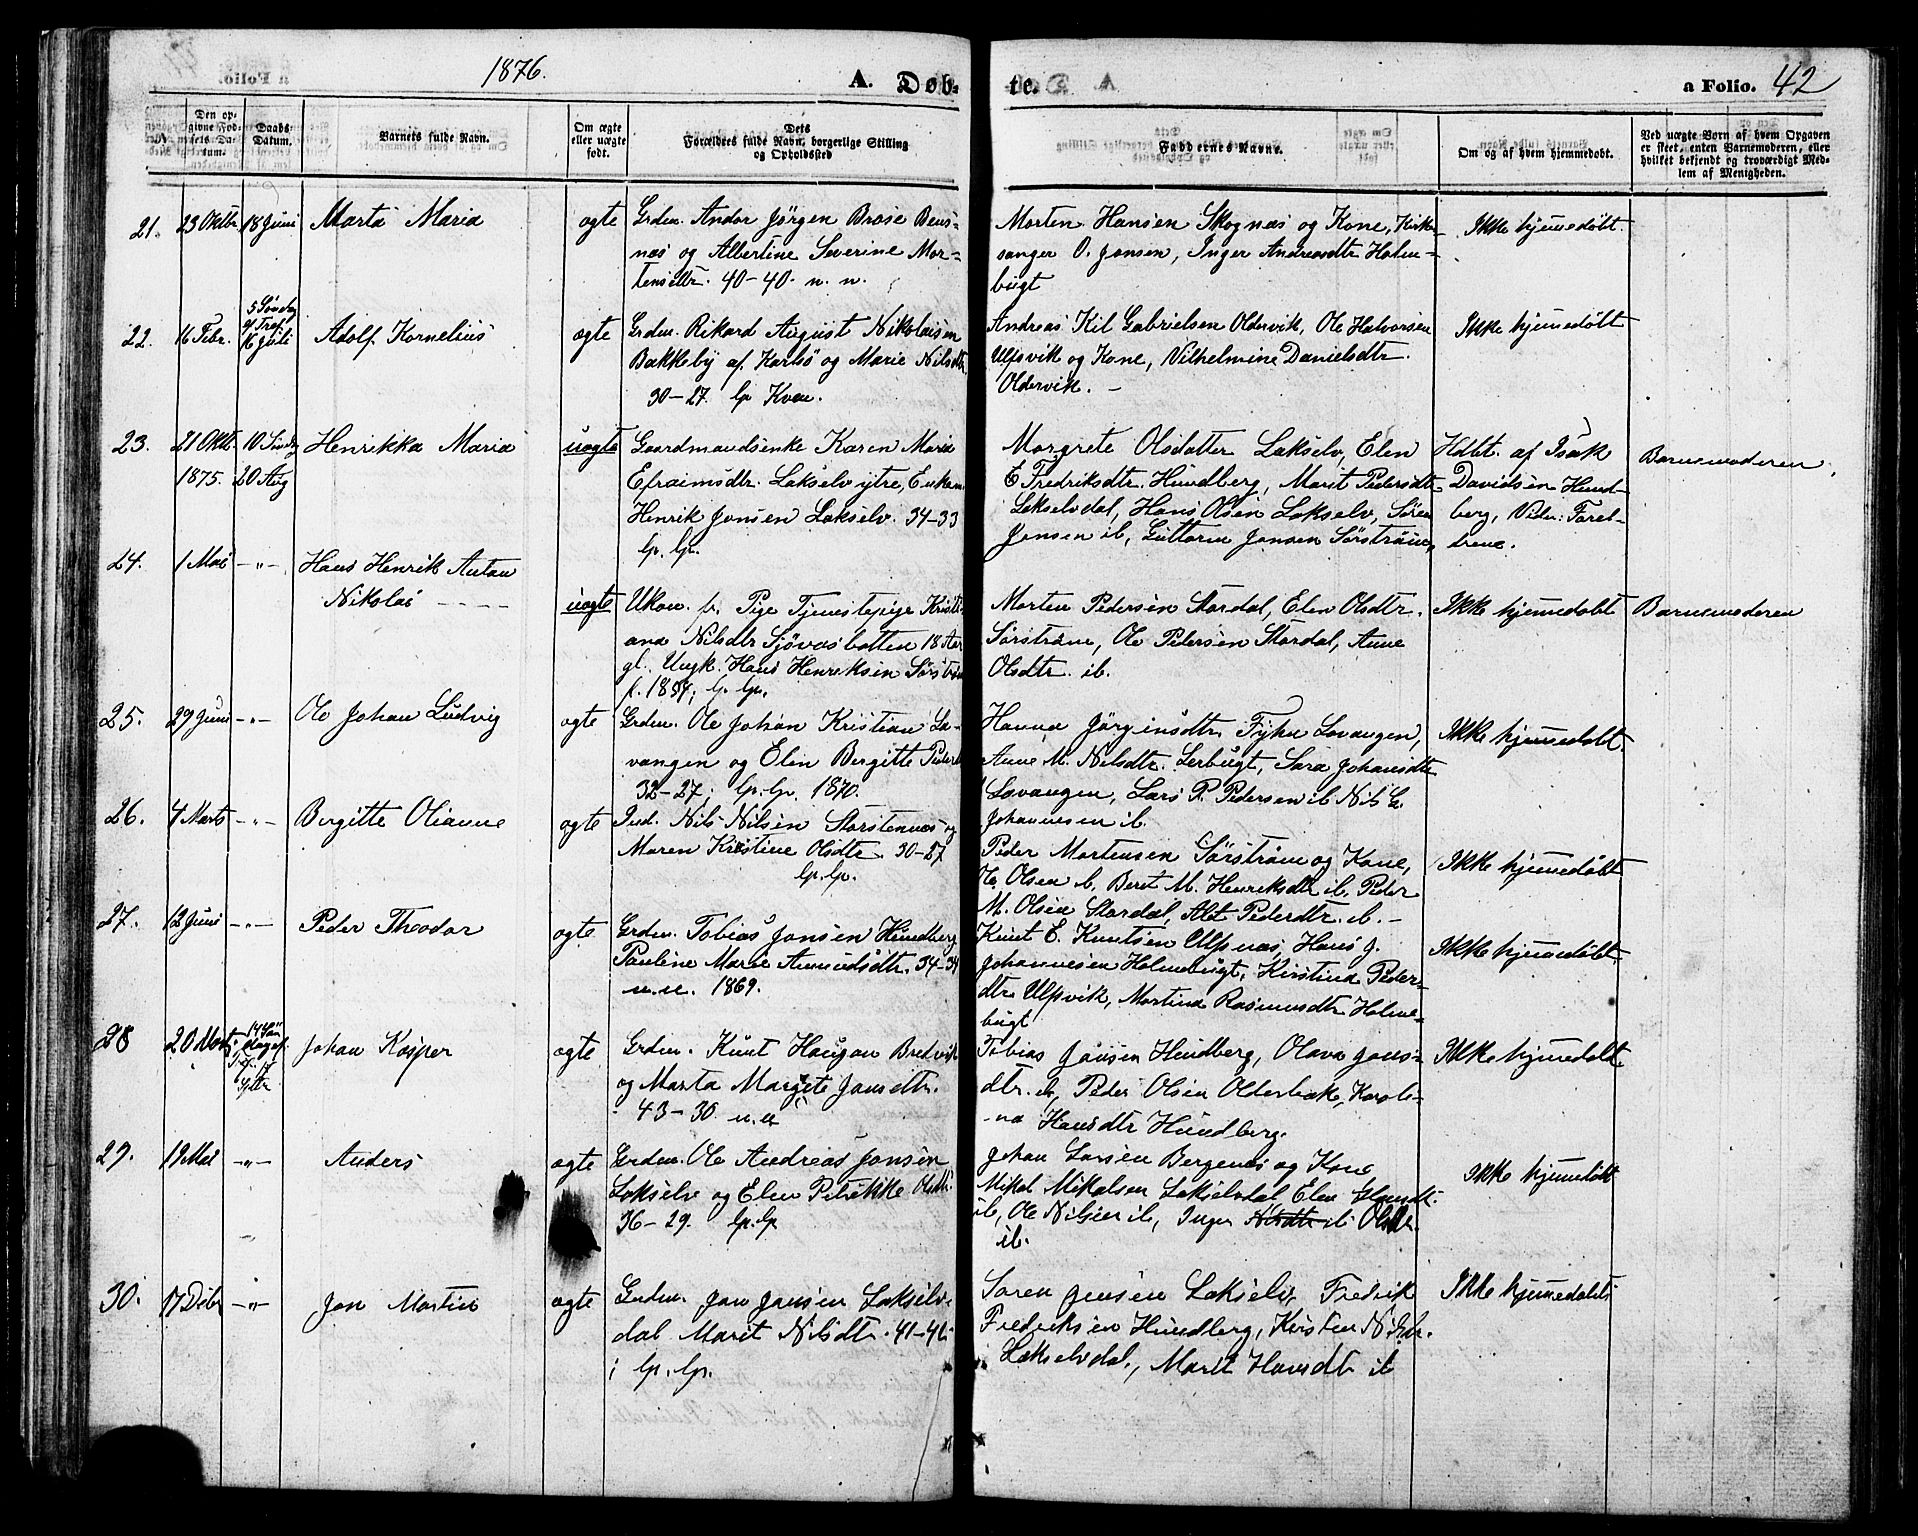 1876.
A. Døb-
te.
a Folio. 42
Den op-
givne Fød-
sels Da-
tum.
Daabs
Datum.
Barnets fulde Navn.
Om ægte
eller uægte
født.
Dets
Forældres fulde Navn, borgerlige Stilling
og Opholdssted
Faddernes Navne.
Om og af hvem hjemmedøbt.
Ved uægte Børn af hvem Opgaven
er skeet, enten Barnemoderen, eller
hvilket bekjendt og troværdigt Med-
lem af Menigheden.
21. 23 Oktbr. 18 Juni Marta Maria ægte Grdm. Andor Jörgen Brose Bens-
næs og Albertine Severine Mor-
tensdtr. 40-40. n. n.
Morten Hansen Skognæs og Kone, Kirke-
sanger O. Jonsen, Inger Andreasdtr Holm-
bugt
Ikke hjemmedøbt.
22. 16 Febr. 5 Söndag
ef Tref.
16 Juli Adolf Kornelius ægte Grdm. Rikard August Nikolaisen
Bakkeby af Karlsö og Marie Nilsdtr
30-27. lp Kven.
Andreas Kil Gabrielsen Oldervik, Ole Halvorsen
Ulfsvik og Kone, Vilhelmine Danielsdtr.
Oldervik. -
Ikke hjemmedøbt
23. 21 Oktb.
1875. 10 Söndag
20 Aug Henrikka Maria uægte Gaardmandsenke Karen Maria
Efraimsdtr. Lakselv ytre, Enkem.
Henrik Jonsen Lakselv. 34-33
lp. lp.
Margrete Olsdatter Lakselv, Elen
E Fredriksdtr. Hundberg, Marit Pedersdtr
Lakselvdal, Hans Olsen Lakselv, Sören
Jensen ib, Guttorm Jonsen Sörström,
Hdbt. af Isak
Davidsen Hund-
berg, Vidn: Foræl-
drene.
Barnemoderen,
24. 1 Mai -"- Hans Henrik Antan
Nikolai uægte Ukon. fr. Pige Tjenestepige Kristi-
ana Nilsdtr Sjövasbotten 18 Aar
gl. Ungk. Hans Henriksen Sörström
f. 1854, lp. lp.
Morten Pedersen Stordal, Elen Olsdtr.
Sörström, Ole Pedersen Stordal, Anne
Olsdtr. ib.
Ikke hjemmedøbt Barnemoderen
25. 29 Juni -"- Ole Johan Ludvig ægte Grdm. Ole Johan Kristian La-
vangen og Elen Bergitte Peders
32-27; lp.-lp. 1870.
Hanna Jörginsdtr. Fykn Lavangen,
Anne M. Nilsdtr. Lerbugt, Sara Johansdtr
Lavangen, Lars P. Pedersen ib Nils L.
Johannesen ib.
Ikke hjemmedøbt
26. 4 Marts -"- Bergitte Olianne ægte Ind. Nils Nilsen Storstennæs og
Maren Kristine Olsdtr. 30-27
lp. lp.
Peder Mortensen Sörström og Kone,
Ole Olsen ib, Beret M. Henriksdtr ib, Peder
M. Olsen Stordal, Alet Pederdtr. ib. -
Ikke hjemmedøbt
27. 12 Juni -"- Peder Theodor ægte Grdm. Tobias Jonsen Hundberg
Pauline Marie Amundsdtr. 34-34
n.n. 1869.
Knut E. Knutsen Ulfsnæs, Hans J.
Johannesen Holmbugt, Kirstina Peders-
dtr Ulfsvik, Martina Rasmusdtr Holm-
bugt
Ikke hjemmedøbt.
28 20 Marts 14 Sön
dag ef.
Tref. 17
Sptbr Johan Kasper ægte Grdm. Knut Haugan Bredvik
og Marta Margrete Jonsdtr.
43-30 n.n
Tobias Jonsen Hundberg, Olava Jons-
dtr. ib, Peder Olsen Olderbakke, Karoli-
-na Hansdtr Hundberg.
Ikke hjemmedøbt.
29. 19 Mai -"- Anders ægte Grdm. Ole Andreas Jonsen
Lakselv og Elen Petrikke Olsdtr.
36-29. lp. lp
Johan Larsen Bergenes og Kone
Mikal Mikalsen Lakselvdal, Elen
ib, Ole Nilsen ib, Inger Nilsdtr ib Olsdtr.
ib.
Ikke hjemmedøbt
30. 17 Debr -"- Jon Martin ægte Grdm. Jon Jonsen Lakselv-
dal Marit Nilsdtr. 41-41
lp. lp.
Sören Jensen Lakselv, Fredrik
Fredriksen Hundberg, Kirsten Nilsdtr.
Lakselvdal, Marit Hansdtr ib
Ikke hjemmedøbt